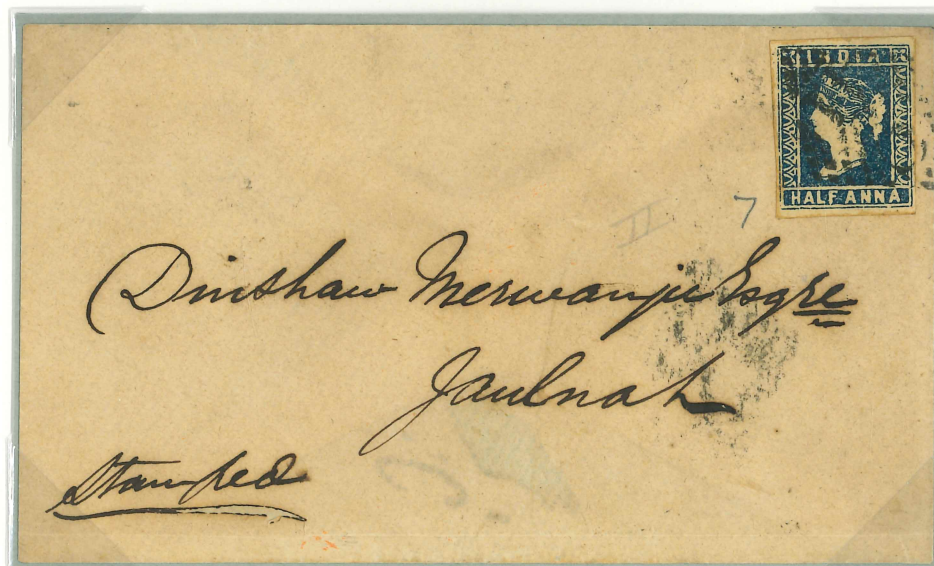 INDIA
HALF ANNA
7
II
Dinshaw Merwanjie Esqre
Jaulnah
Stamped